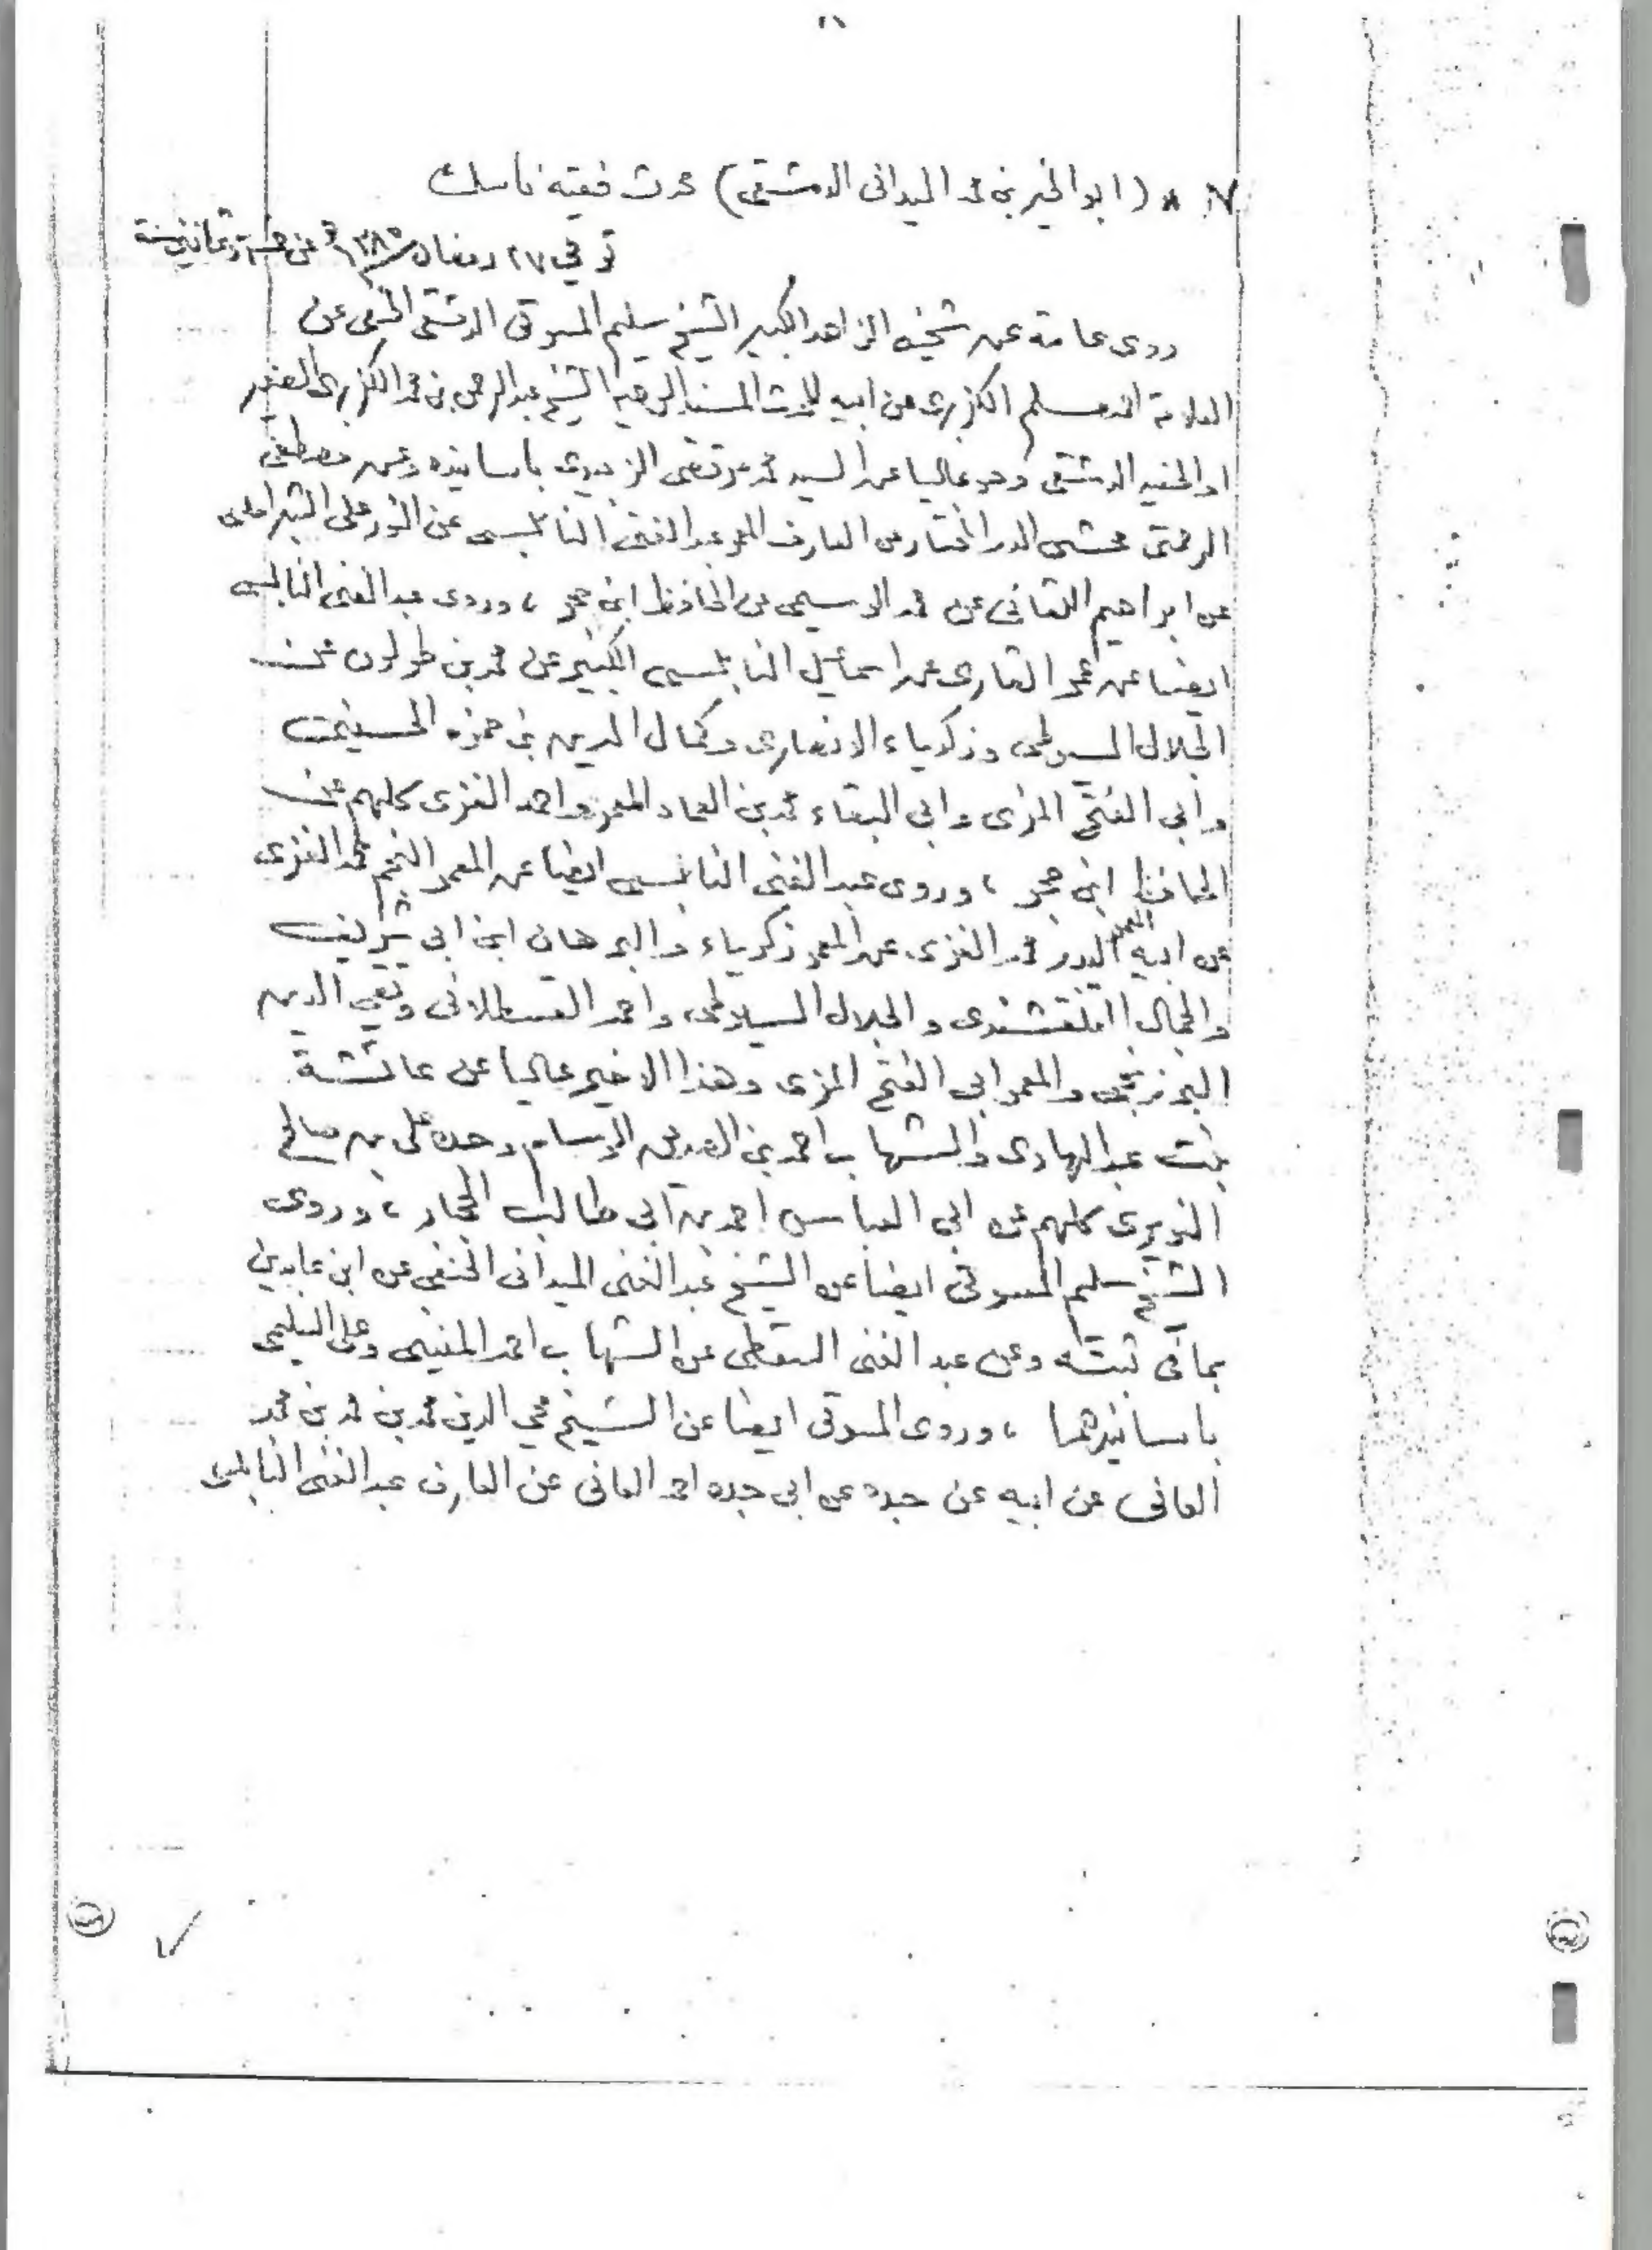 ٧ * (ابو الخير بن محمد الميدانى الدمشقى) محدث فقيه ناسك
توفي ٢٧ رمضان ١٣٨٠ عن خمس وثمانين سنة
روى عامة عن شيخه الزاهد الكبير الشيخ سليم المسوتى الدمشقى الحنفى عن
العلامة احمد مسلم الكزبرى عن ابيه المحدث المسند الوجيه الشيخ عبد الرحمن بن محمد الكزبرى الصغير
او الحفيد الدمشقى وهو عاليا عن السيد محمد مرتضى الزبيدى باسانيده وعن مصطفى
الرحمتى محشى الدر المختار عن العارف المعمر عبد الغنى النابلسى عن النور على الشبراملسى
عن ابراهيم اللقانى عن محمد الوسيمى عن الحافظ ابن حجر ، وروى عبد الغنى النابلسى
ايضا عن عمر القارى عن اسماعيل النابلسى الكبير عن محمد بن طولون عن
الجلال السيوطى وزكرياء الانصارى وكمال الدين بن حمزه الحسينى
وأبي الفتح المزى وابى البقاء محمد بن العماد المعمر واحمد الغزى كلهم عن
الحافظ ابن حجر ، وروى عبد الغنى النابلسى ايضا عن المعمر النجم محمد الغزى
عن ابيه المعمر البدر محمد الغزى عن المعمر زكرياء والبرهان ابن ابى شريف
والجمال القلقشندى والجلال السيوطى واحمد القسطلانى وتقي الدين
البرزنجى والمعمر ابى الفتح المزى وهذا الاخير عاليا عن عائشة
بنت عبد الهادى والشهاب احمد بن وحده على بن صالح
النويرى كلهم عن ابى العباس احمد بن ابى طالب الحجار ، وروى
الشيخ سليم المسوتى ايضا عن الشيخ عبد الغنى الميدانى الحنفى عن ابن عابدين
بما فى ثبته وعن عبد الغنى السقطى عن الشهاب احمد المنينى وعلى السليمى
باسانيدهما ، وروى المسوتى ايضا عن الشيخ محي الدين محمد بن محمد بن محمد
العانى عن ابيه عن جده عن ابى جده احمد العانى عن العارف عبد الغنى النابلسى